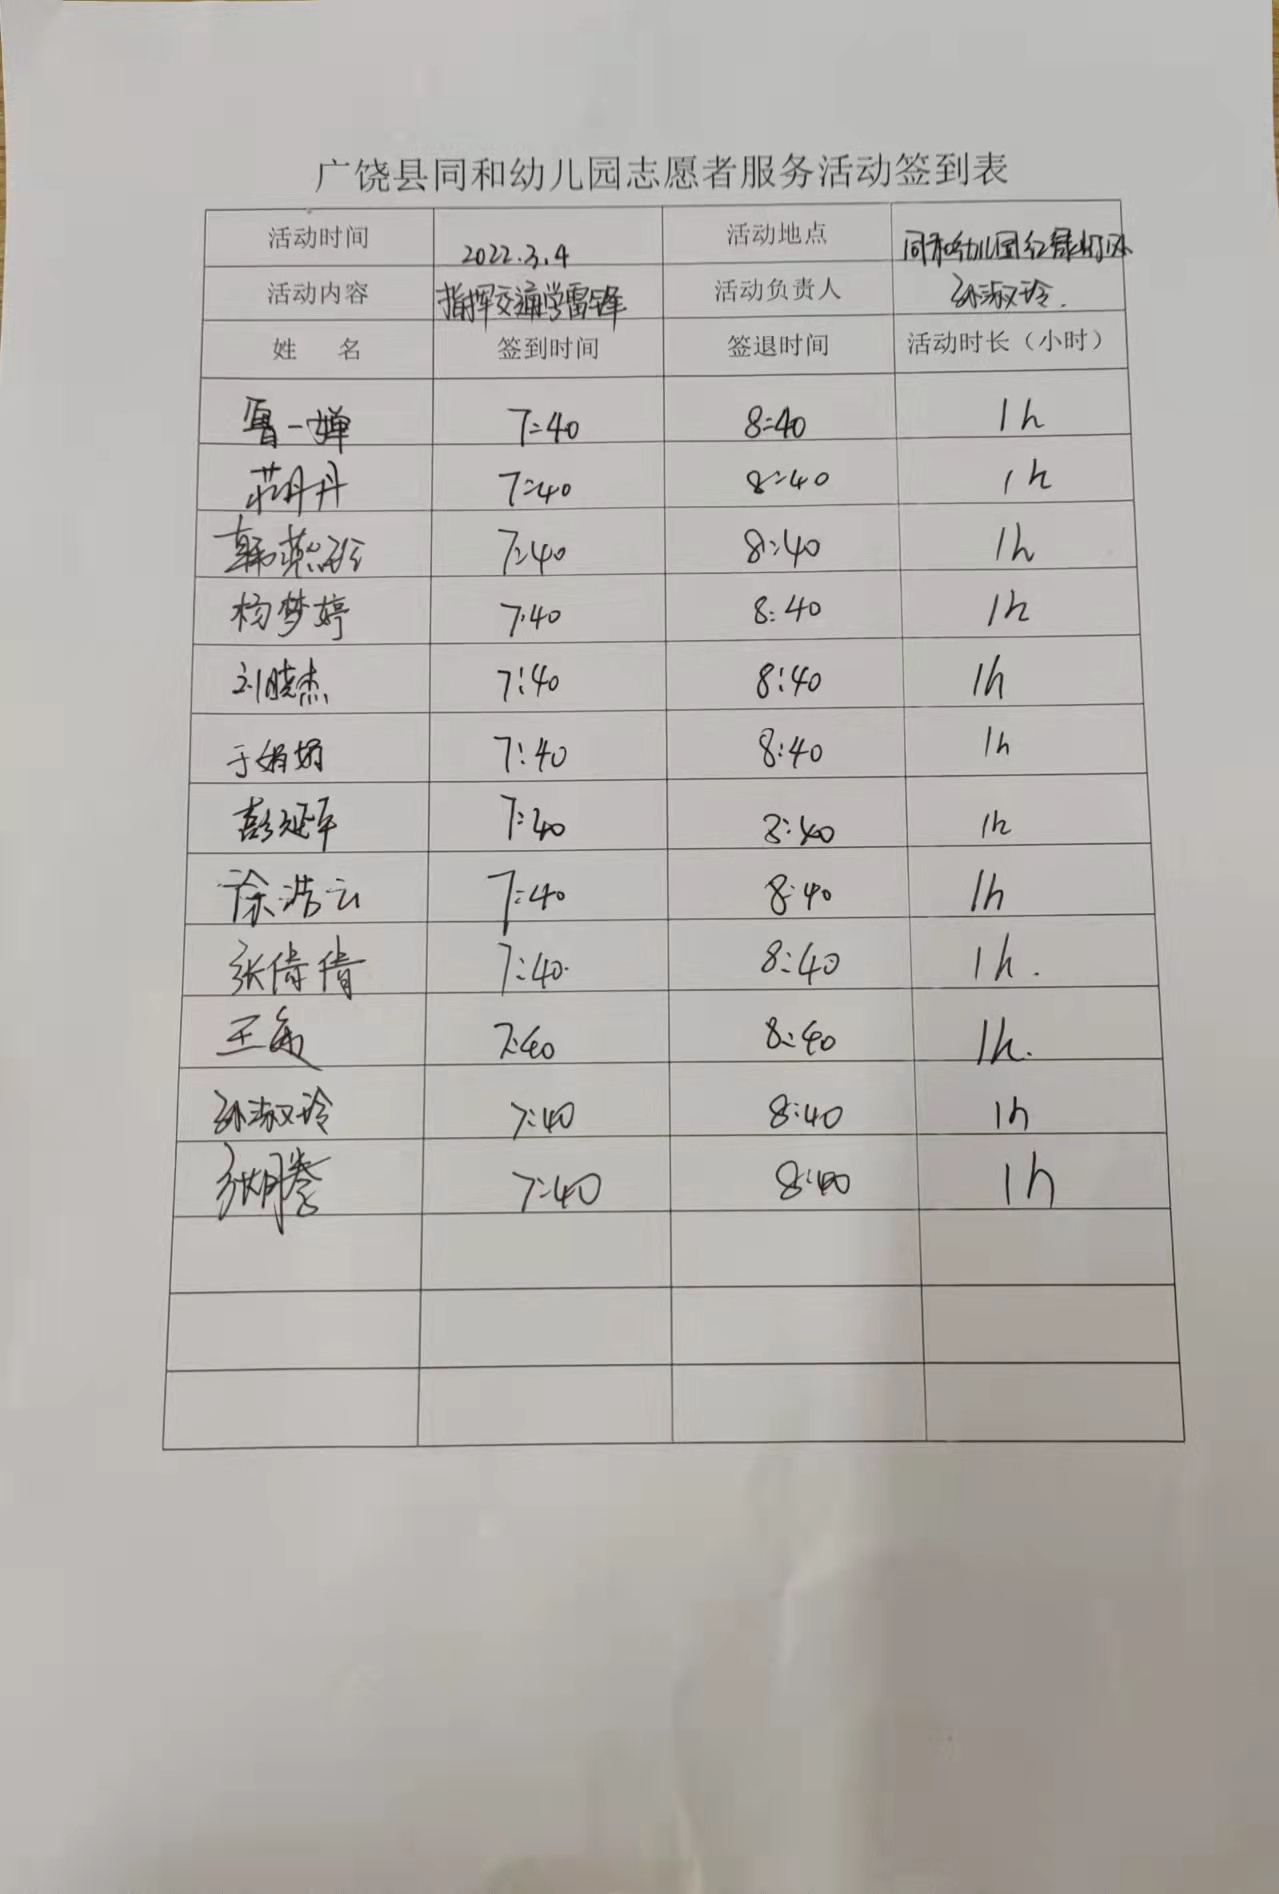 广饶县同和幼儿园志愿者服务活动签到表
活动时间 2022.3.4 活动地点 同和幼儿园红绿灯
活动内容 指挥交通学雷锋 活动负责人 孙淑玲.
姓 名 签到时间 签退时间 活动时长（小时）
一婵 7:40 8:40 1h
丹丹 7:40 8:40 1h
韩燕 7:40 8:40 1h
杨梦婷 7:40 8:40 1h
刘晓杰 7:40 8:40 1h
于娟娟 7:40 8:40 1h
彭延军 7:40 8:40 1h
徐浩云 7:40 8:40 1h
张倩倩 7:40. 8:40 1h.
王 7:40 8:40 1h.
孙淑玲 7:40 8:40 1h
张腾 7:40 8:40 1h